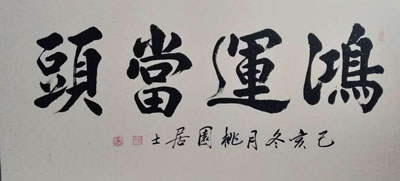 鴻運當頭
己亥冬月桃園居士